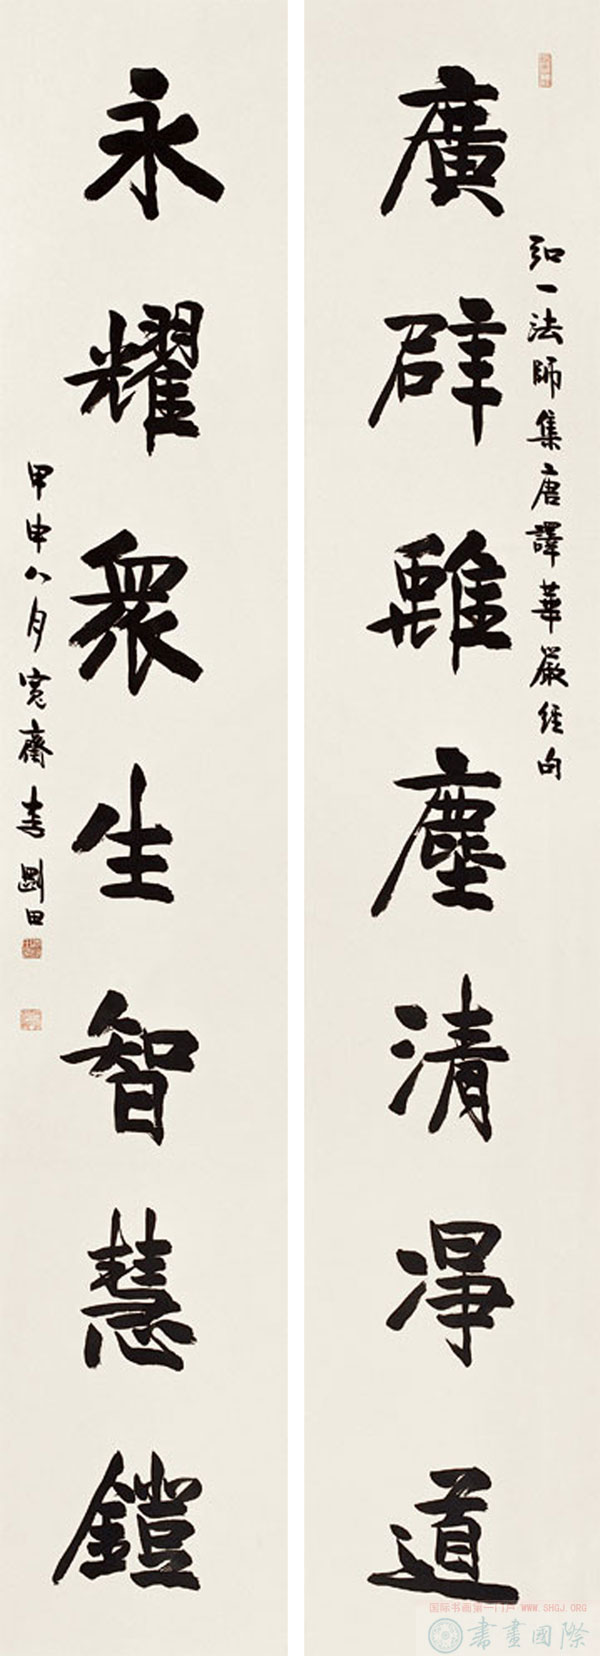 弘一法師集唐譯華嚴經句
廣辟離塵清淨道
永耀眾生智慧鐙
甲申八月寬齋李剛田
国际书画第一门户 WWW.SHGJ.ORG
書畫國際